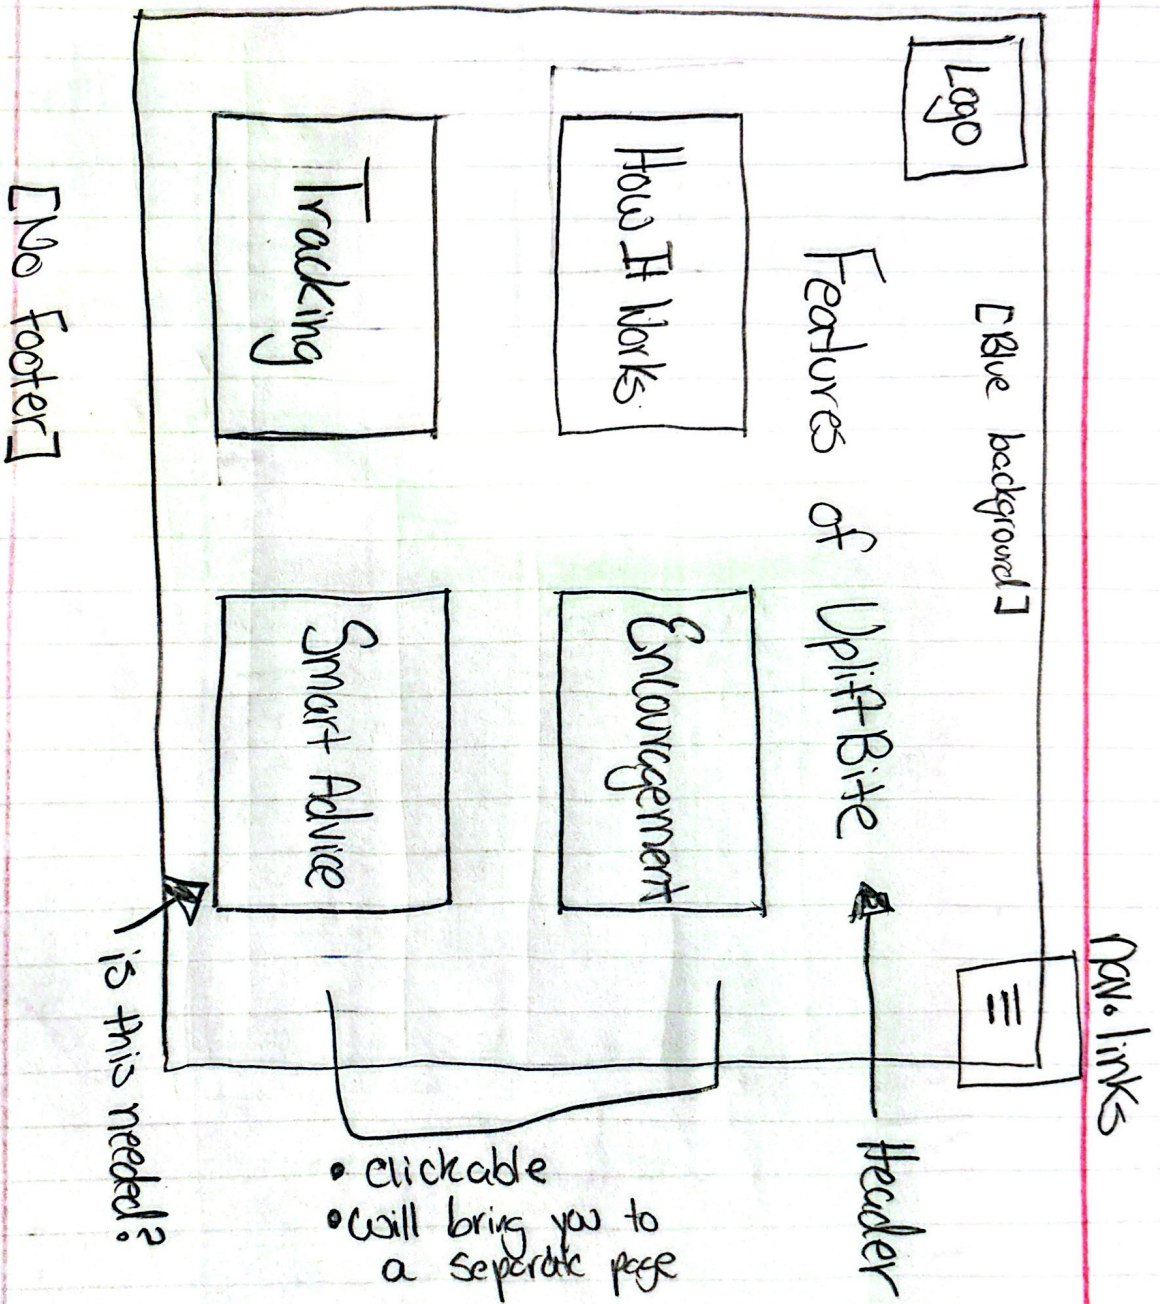 nav. links
Logo
[Blue background]
≡
Features of UpliftBite
Header
How It Works
Encouragement
Tracking
Smart Advice
• clickable
• will bring you to
a separate page
is this needed?
[No footer]